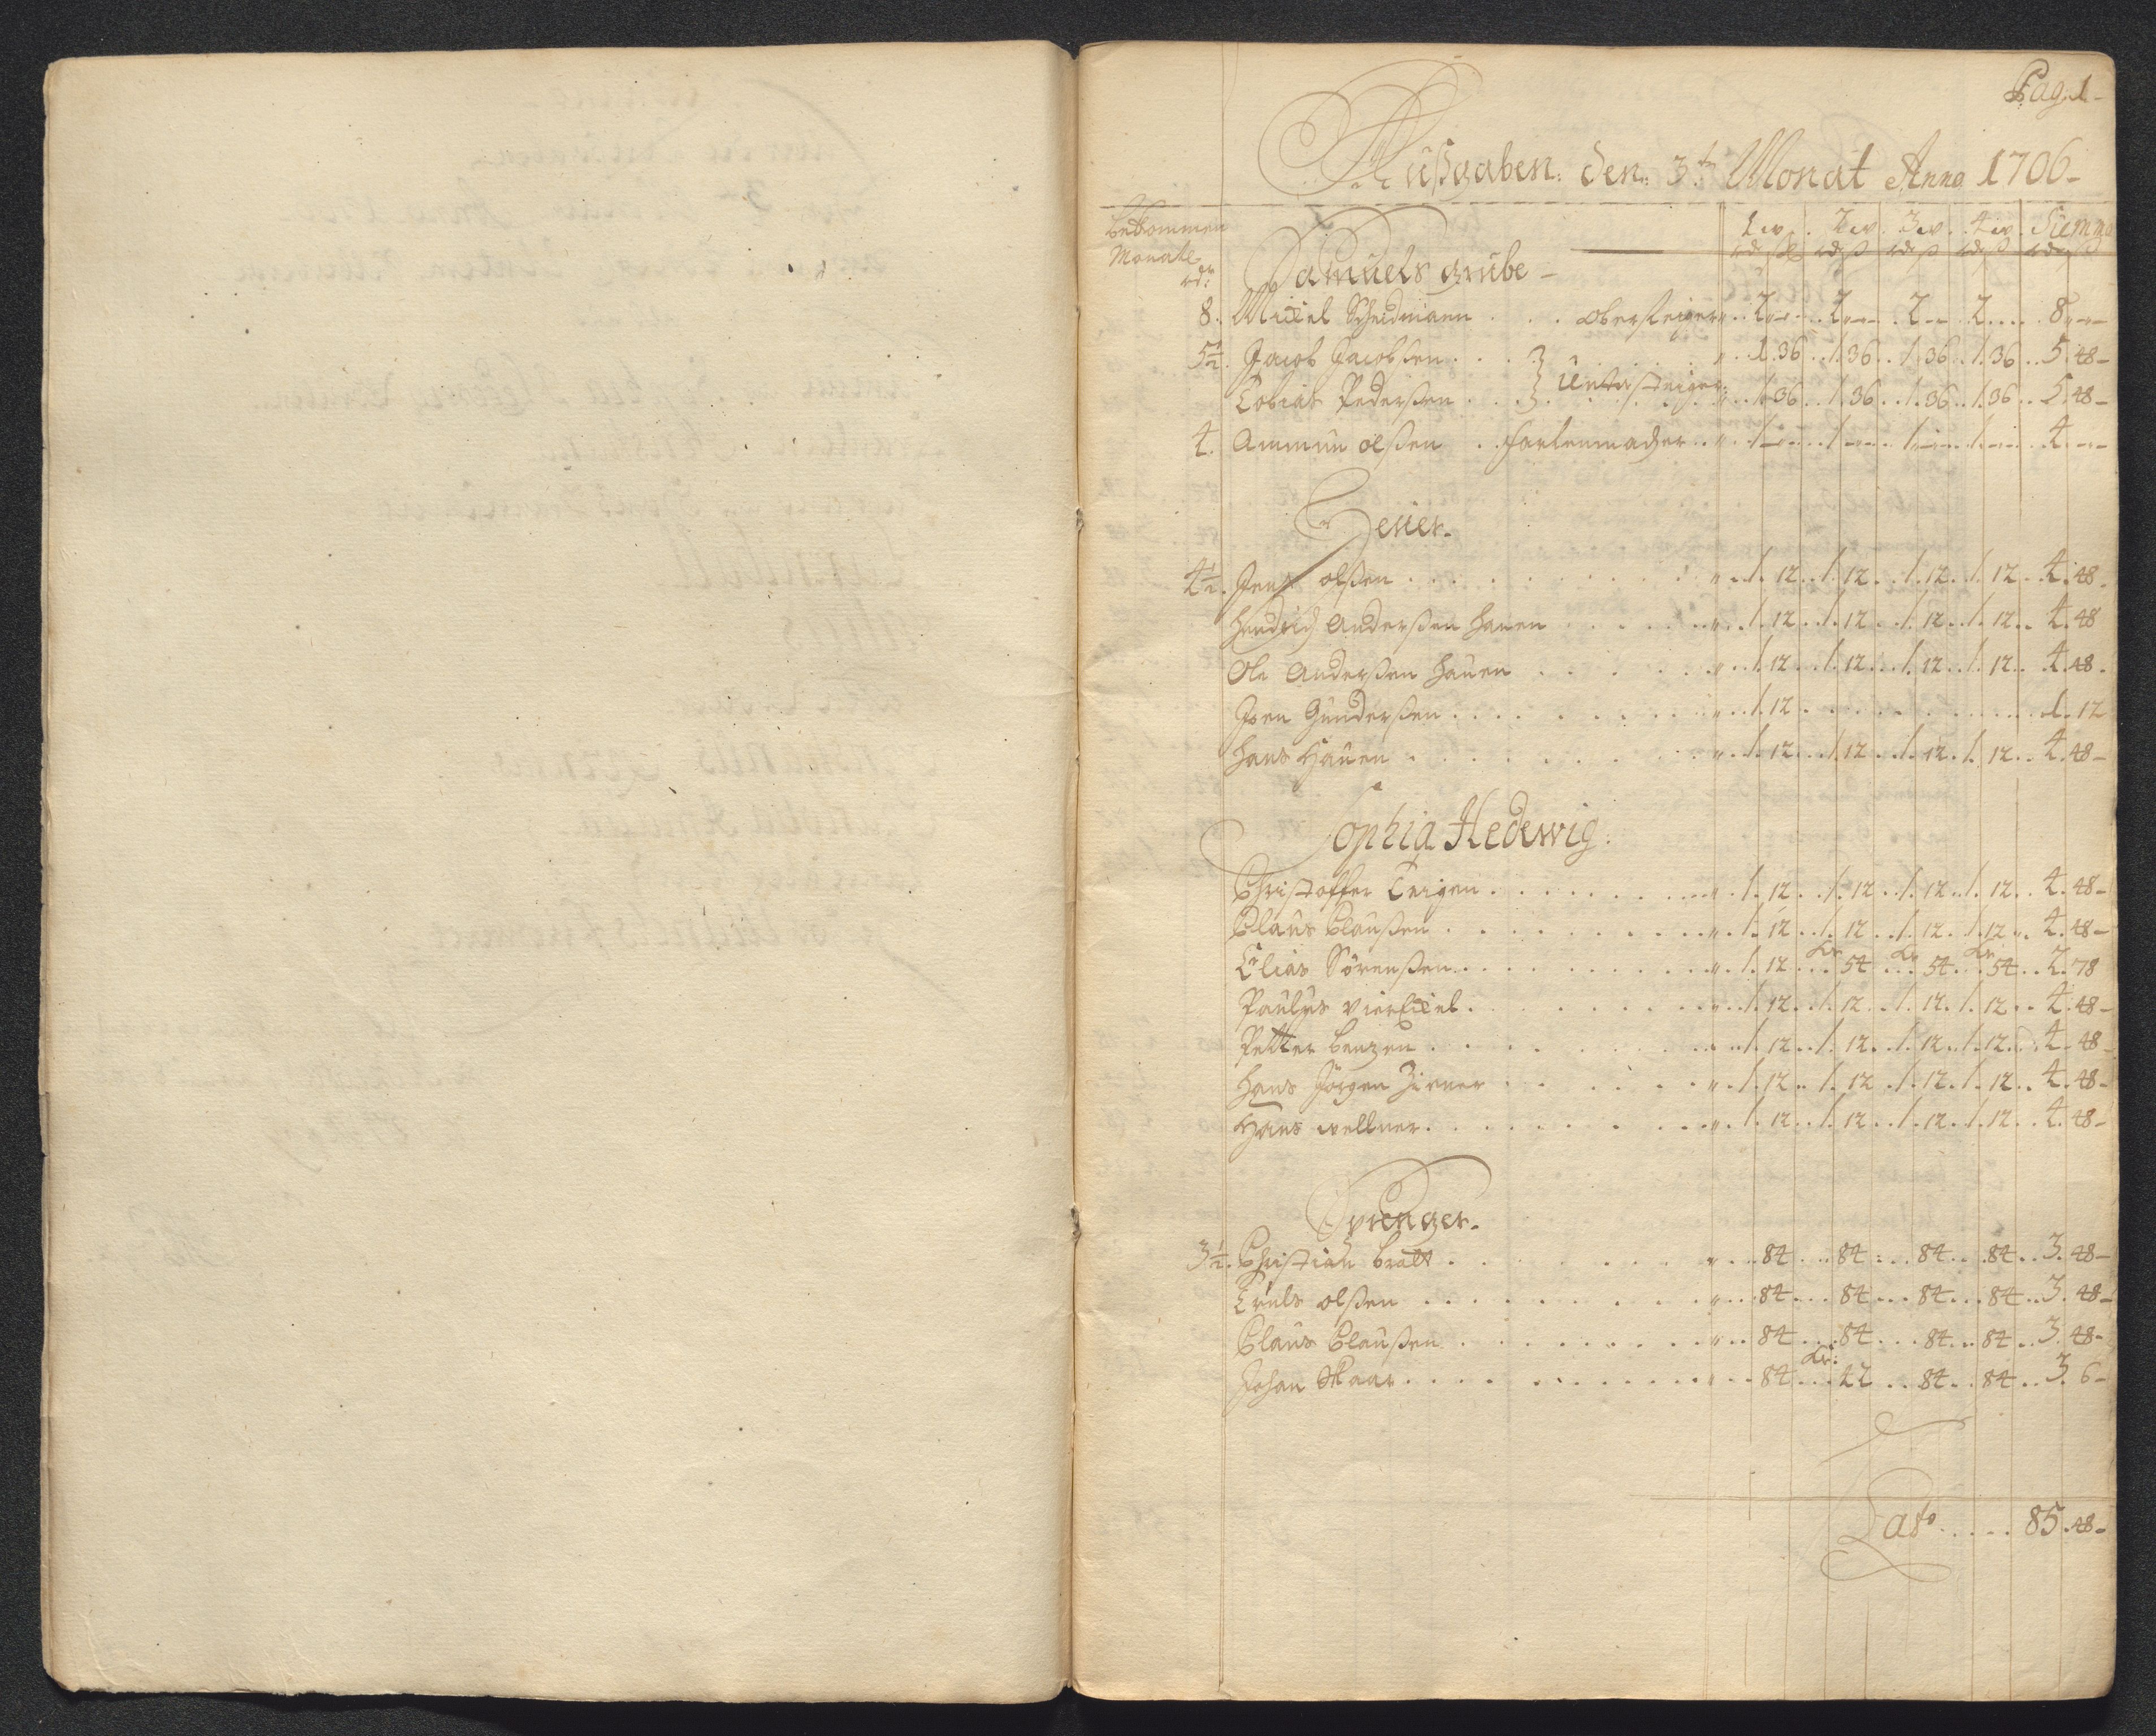 Pag. 1
Außgaben. Den 3t. Monat Anno 1706
Bekommen
Monatl.
rdr
1 w. 2 w. 3 w. 4 w. Summa
rdr ß rdr ß rdr ß rdr ß rdr ß
Samuels grube
8. Michel Schmidmann . . . obersteiger 2 2 2 2 . . 8
5½. Jacob Jacobsen . . . 1. 36 . 1. 36 . 1. 36 . 1. 36 . 5. 48
Untersteiger
Tobias Pederßen . . . 1. 36 . 1. 36 . 1. 36 . 1. 36 . 5. 48
4. Ammun olßen . . 1 1 1 1 . 4
Heuer
4½. Jens olßen . . . 1. 12 . 1. 12 . 1. 12 . 1. 12 . 4. 48
Hendrich Anderßen Hauen . . . 1. 12 . 1. 12 . 1. 12 . 1. 12 . 4. 48
Ole Anderßen Hauen . . . 1. 12 . 1. 12 . 1. 12 . 1. 12 . 4. 48
Joen Gunderßen . . . 1. 12 . . . 1. 12
Hans Hauen . . . 1. 12 . 1. 12 . 1. 12 . 1. 12 . 4. 48
Sophia Hedewig
Christoffer . . . 1. 12 . 1. 12 . 1. 12 . 1. 12 . 4. 48
Claus Claußen . . . 1. 12 . 1. 12 . 1. 12 . 1. 12 . 4. 48
Kr Kr Kr
Elias Sörenßen . . . 1. 12 . 54 . 54 . 54 . 2. 78
Paulus . . . 1. 12 . 1. 12 . 1. 12 . 1. 12 . 4. 48
Petter . . . 1. 12 . 1. 12 . 1. 12 . 1. 12 . 4. 48
Hans Jörgen . . . 1. 12 . 1. 12 . 1. 12 . 1. 12 . 4. 48
Hans wellner . . . 1. 12 . 1. 12 . 1. 12 . 1. 12 . 4. 48
Sprenger
3½. Christian Bratt . . . 84 . 84 . 84 . 84 . 3. 48
Truls olßen . . . 84 . 84 . 84 . 84 . 3. 48
Claus Claußen . . . 84 . 84 . 84 . 84 . 3. 48
Kr:
Johan Skaar . . . 84 . 42 . 84 . 84 . 3. 6
Lats . . . . 85. 48